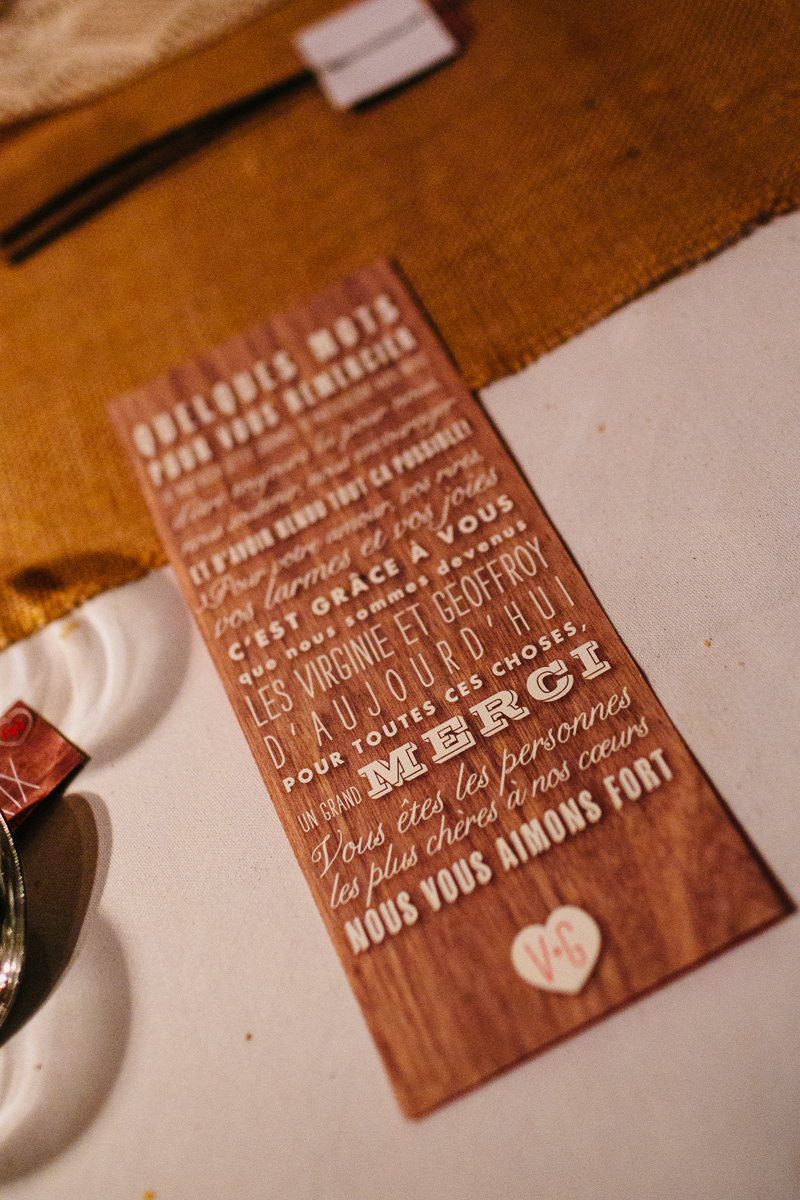 QUELQUES MOTS
POUR VOUS REMERCIER
d'être toujours là pour nous
nous soutenir, nous encourager
ET D'AVOIR RENDU TOUT ÇA POSSIBLE!
Pour votre amour, vos rires,
vos larmes et vos joies
C'EST GRÂCE À VOUS
que nous sommes devenus
LES VIRGINIE ET GEOFFROY
D'AUJOURD'HUI
POUR TOUTES CES CHOSES,
UN GRAND MERCI
Vous êtes les personnes
les plus chères à nos cœurs
NOUS VOUS AIMONS FORT
V•G